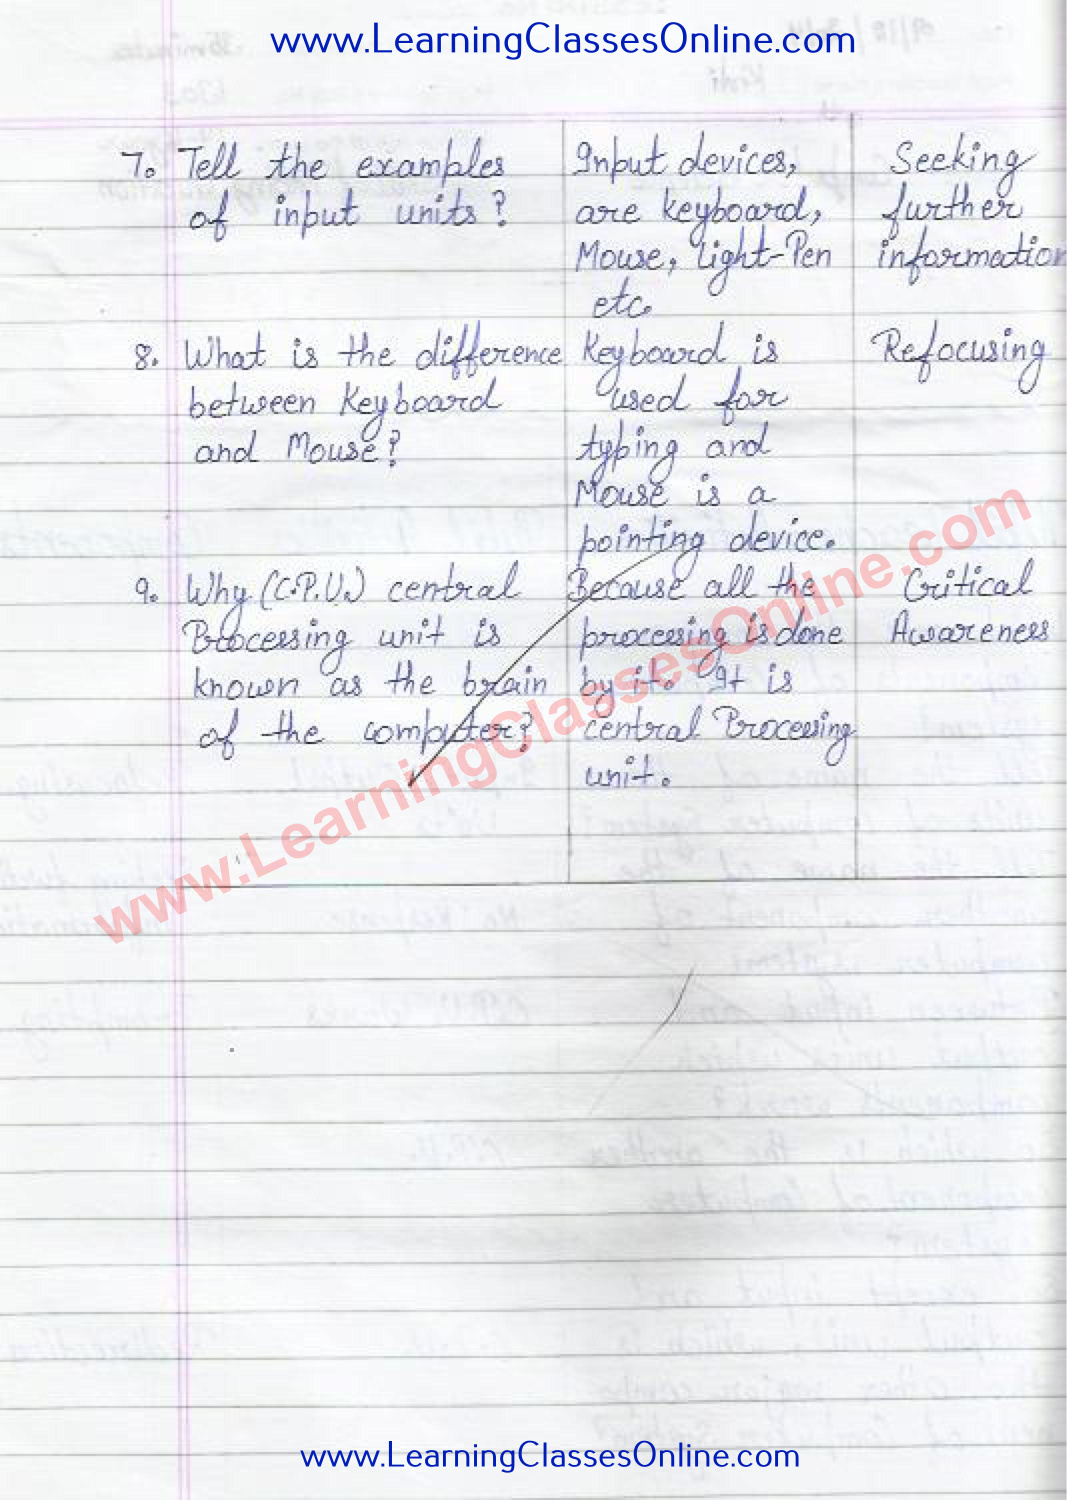 www.LearningClassesOnline.com
7. Tell the examples
of input units?
Input devices,
are keyboard,
Mouse, Light-Pen
etc.
Seeking
further
information
8. What is the difference
between Keyboard
and Mouse?
Keyboard is
used for
typing and
Mouse is a
pointing device.
Refocusing
9. Why (C.P.U.) central
Processing unit is
known as the brain
of the computer?
Because all the
processing is done
by it. It is
central Processing
unit.
Critical
Awareness
www.LearningClassesOnline.com
www.LearningClassesOnline.com